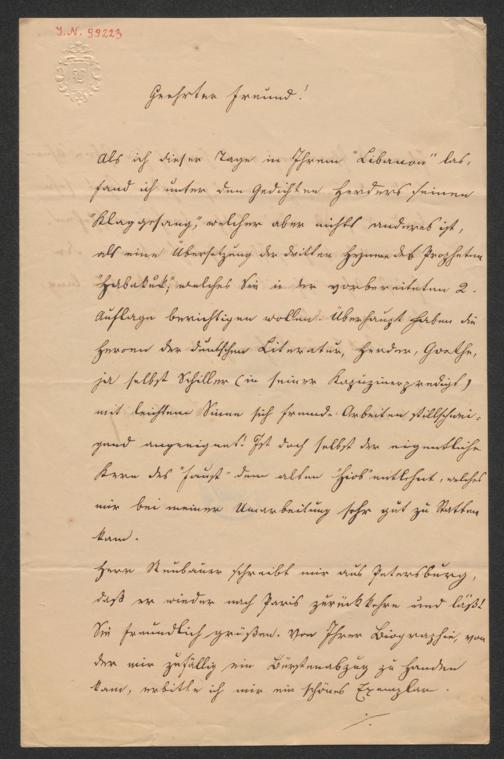 I.N. 99223
Geehrter Freund!
Als ich dieser Tage in Ihrem "Libanon" las,
fand ich unter den Gedichten Herders seinen
"Klaggesang", welcher aber nichts anderes ist,
als eine Übersetzung der dritten Hymne des Propheten
"Habakuk", welches Sie in der vorbereiteten 2.
Auflage berichtigen wollen. Überhaupt haben die
Heroen der deutschen Literatur, Herder, Goethe,
ja selbst Schiller (in seiner Kapuzinerpredigt)
mit leichtem Sinne sich fremde Arbeiten stillschwei-
gend angeeignet. Ist doch selbst der eigentliche
Kern des "Faust" dem alten "Hiob" entlehnt, welches
mir bei meiner Umarbeitung sehr gut zu Statten
kam.
Herr Neubauer schreibt mir aus Petersburg,
daß er wieder nach Paris zurückkehre und läßt
Sie freundlich grüßen. Von Ihrer Biographie, von
der mir zufällig ein Bürstenabzug zu Handen
kam, erbitte ich mir ein schönes Exemplar.
./.